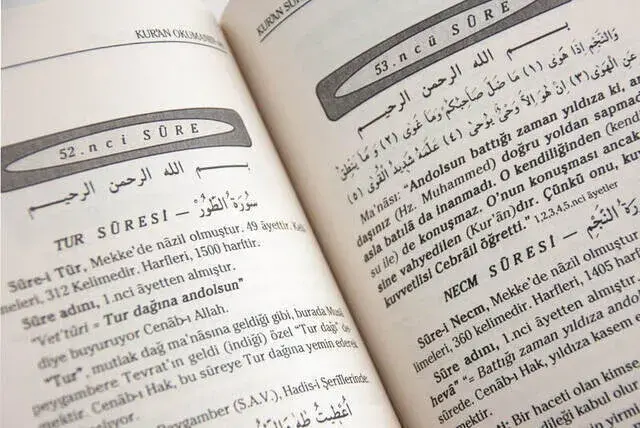 KUR'AN OKUMANIN
52.nci SÛRE
بسم الله الرحمن الرحيم
TUR SÛRESİ — سُورَةُ الطُّورِ
Sûre-i Tûr, Mekke'de nâzil olmuştur. 49 âyettir. Keli-
meleri, 312 Kelimedir. Harfleri, 1500 harftir.
Sûre adını, 1.nci âyetten almıştır.
"Vet'tûri = Tur dağına andolsun"
diye buyuruyor Cenâb-ı Allah.
"Tur", mutlak dağ ma'nâsına geldiği gibi, burada Musâ
peygambere Tevrat'ın geldi (indiği) özel "Tur dağı" de-
mektir. Cenâb-ı Hak, bu sûreye Tur dağına yemin ederek
Peygamber (S.A.V.), Hadis-i Şerîflerinde:
أُعْطِيتُ طٰهٰ
KUR'AN
53.ncü SÛRE
بسم الله الرحمن الرحيم
وَالنَّجْمِ إِذَا هَوَى (١) مَا ضَلَّ صَاحِبُكُمْ وَمَا غَوَى (٢) وَمَا يَنْطِقُ
عَنِ الْهَوَى (٣) إِنْ هُوَ إِلَّا وَحْيٌ يُوحَى (٤) عَلَّمَهُ شَدِيدُ الْقُوَى (٥)
Ma'nâsı: "Andolsun battığı zaman yıldıza ki,
daşınız (Hz. Muhammed) doğru yoldan sapma
asla batıla da inanmadı. O kendiliğinden (kend
su ile) de konuşmaz. O'nun konuşması ancak
sine vahyedilen (Kur'ân)dır. Çünkü onu, kuv
kuvvetlisi Cebrâil öğretti." 1,2,3,4,5.nci âyetler
NECM SÛRESİ — سُورَةُ النَّجْمِ
Sûre-i Necm, Mekke'de nâzil olmuştur
limeleri, 360 kelimedir. Harfleri, 1405 harf
Sûre adını, 1.nci âyetten almıştır
hevâ" "= Battığı zaman yıldıza ando
sûrede. Cenâb-ı Hak, yıldıza kasem e
mektir.
Bir haceti olan kimse
dileği kabul olur